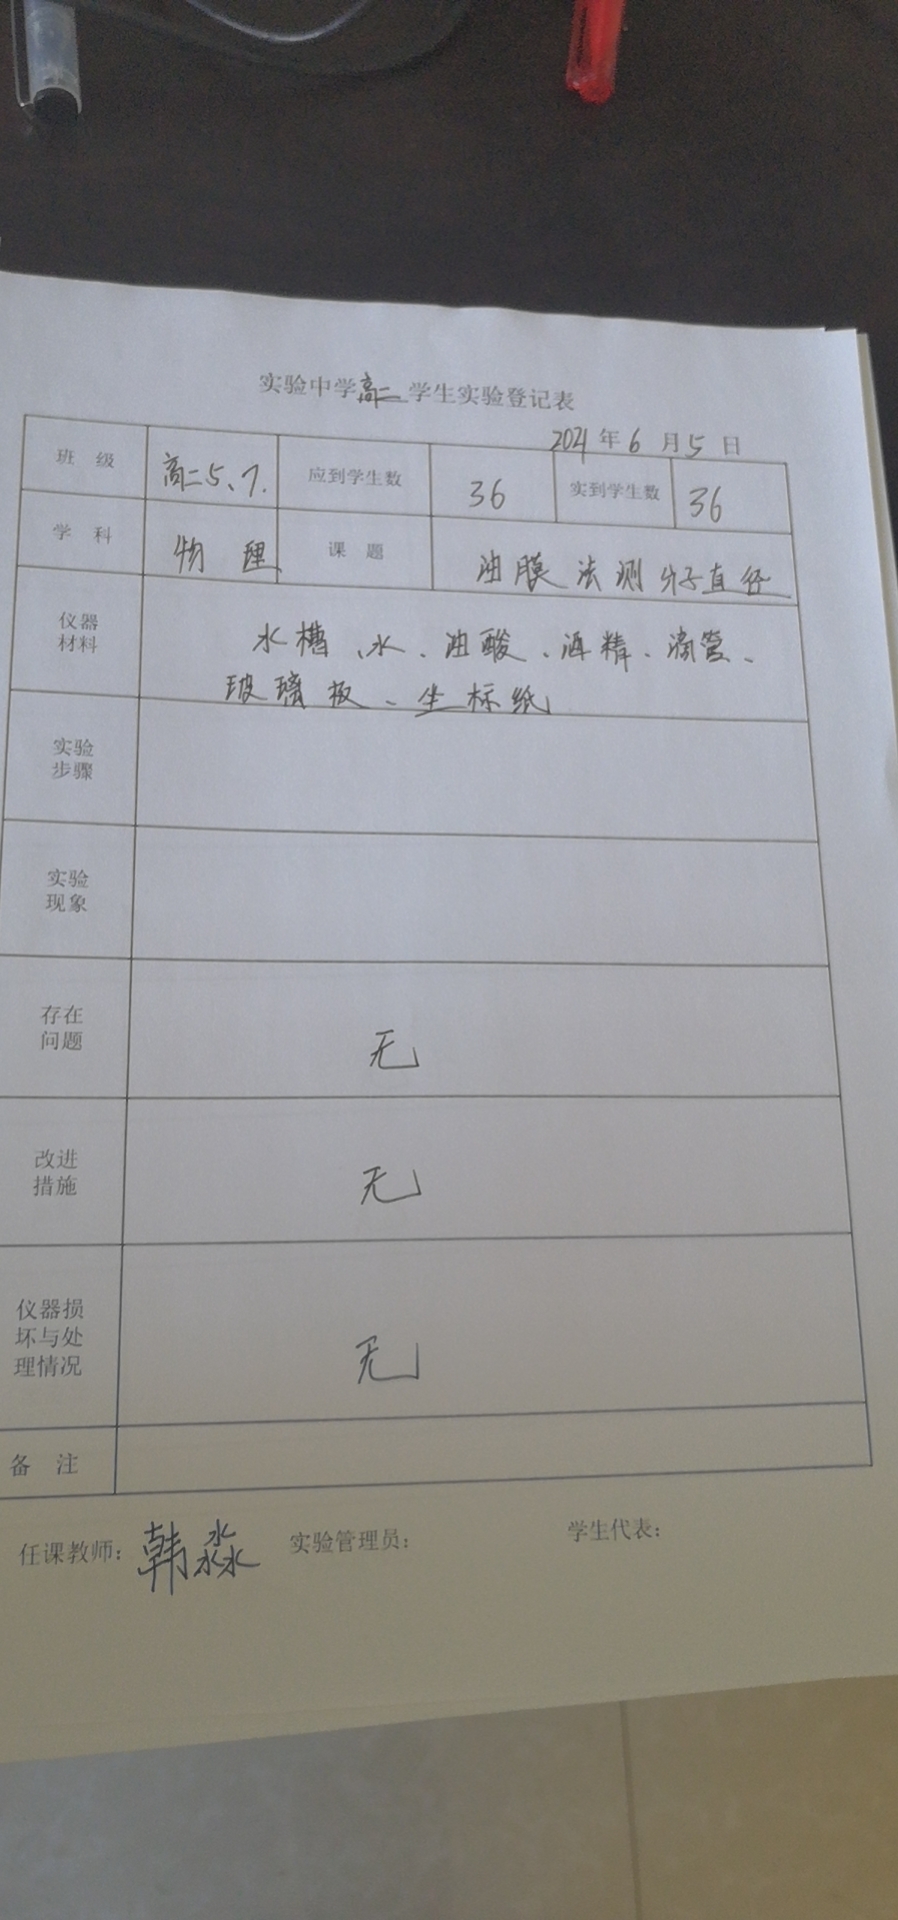 实验中学高二学生实验登记表
2021年6月5日
班 级 高二5、7. 应到学生数 36 实到学生数 36
学 科 物 理 课 题 油膜法测分子直径
仪器材料 水槽、水、油酸、酒精、滴管、
玻璃板、坐标纸
实验
步骤
实验
现象
存在
问题 无
改进
措施 无
仪器损
坏与处
理情况 无
备 注
任课教师：韩淼 实验管理员： 学生代表：